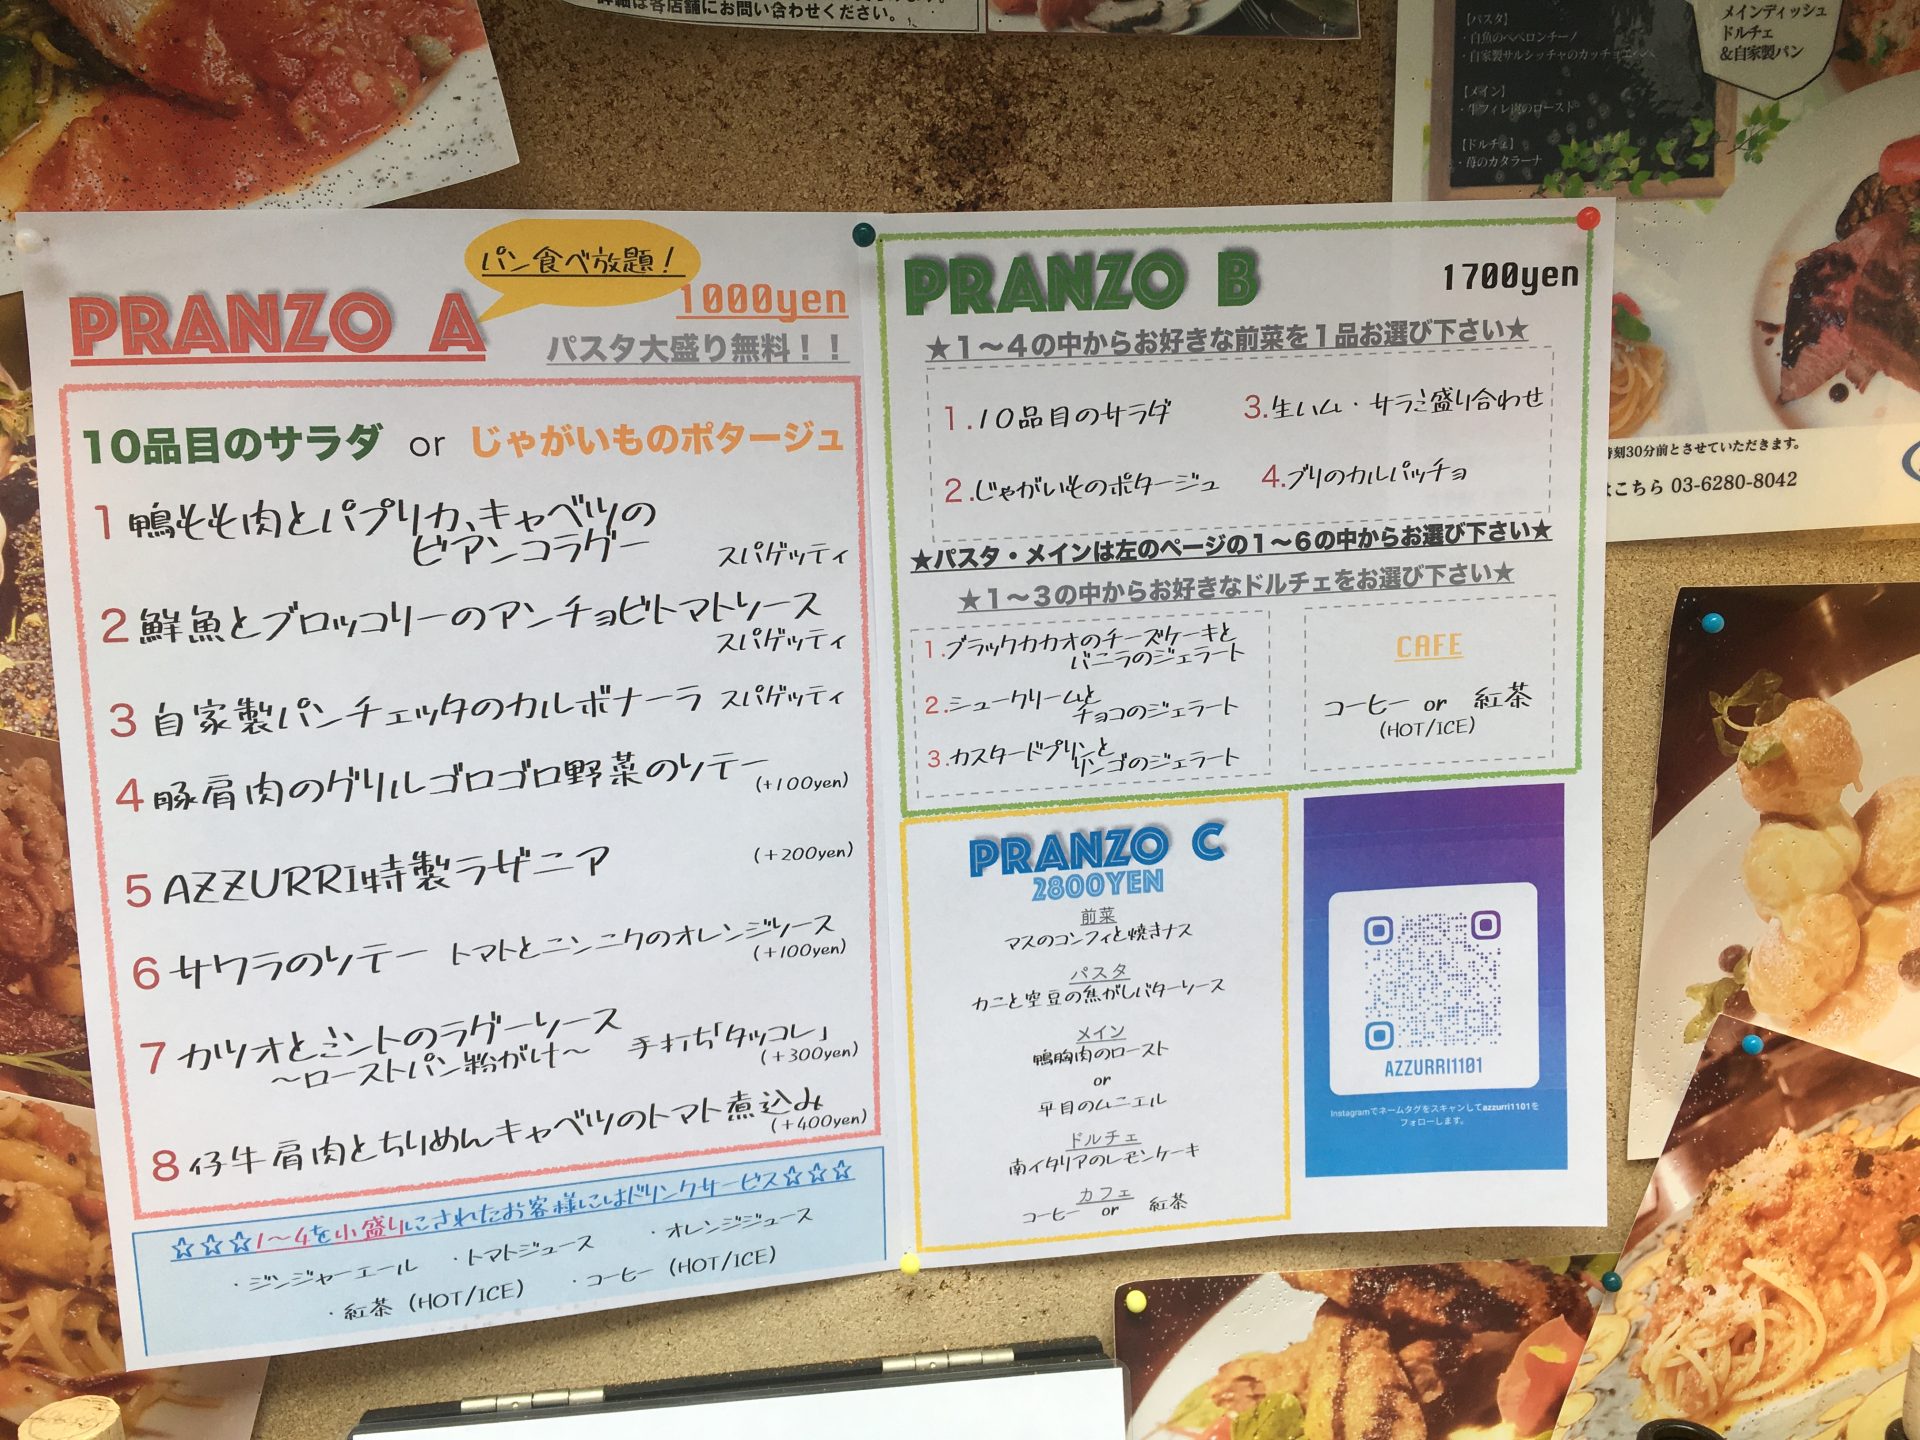 詳細は各店舗にお問い合わせください。
パン食べ放題！
PRANZO A
1000yen
パスタ大盛り無料！！
10品目のサラダ or じゃがいものポタージュ
1 鴨もも肉とパプリカ、キャベツの
ビアンコラグー
スパゲッティ
2 鮮魚とブロッコリーのアンチョビトマトソース
スパゲッティ
3 自家製パンチェッタのカルボナーラ スパゲッティ
4 豚肩肉のグリルゴロゴロ野菜のソテー
(+100yen)
5 AZZURRI特製ラザニア (+200yen)
6 サワラのソテー トマトとニンニクのオレンジソース
(+100yen)
7 カツオとミントのラグーソース
〜ローストパン粉がけ〜 手打ち「タッコレ」
(+300yen)
8 仔牛肩肉とちりめんキャベツのトマト煮込み
(+400yen)
☆☆☆1〜4を小盛りにされたお客様にはドリンクサービス☆☆☆
・ジンジャーエール ・トマトジュース ・オレンジジュース
・紅茶 (HOT/ICE) ・コーヒー (HOT/ICE)
PRANZO B
1700yen
★1〜4の中からお好きな前菜を1品お選び下さい★
1.10品目のサラダ 3.生ハム・サラミ盛り合わせ
2.じゃがいものポタージュ 4.ブリのカルパッチョ
★パスタ・メインは左のページの1〜6の中からお選び下さい★
★1〜3の中からお好きなドルチェをお選び下さい★
1.ブラックカカオのチーズケーキと
バニラのジェラート
2.シュークリームと
チョコのジェラート
3.カスタードプリンと
リンゴのジェラート
CAFE
コーヒー or 紅茶
(HOT/ICE)
PRANZO C
2800YEN
前菜
マスのコンフィと焼きナス
パスタ
カニと空豆の焦がしバターソース
メイン
鴨胸肉のロースト
or
平目のムニエル
ドルチェ
南イタリアのレモンケーキ
カフェ
コーヒー or 紅茶
AZZURRI1101
Instagramでネームタグをスキャンしてazzurri1101を
フォローします。
【パスタ】
・白魚のペペロンチーノ
・自家製サルシッチャのカッチョエペペ
【メイン】
・牛フィレ肉のロースト
【ドルチェ】
・苺のカタラーナ
メインディッシュ
ドルチェ
&自家製パン
時刻30分前とさせていただきます。
はこちら 03-6280-8042